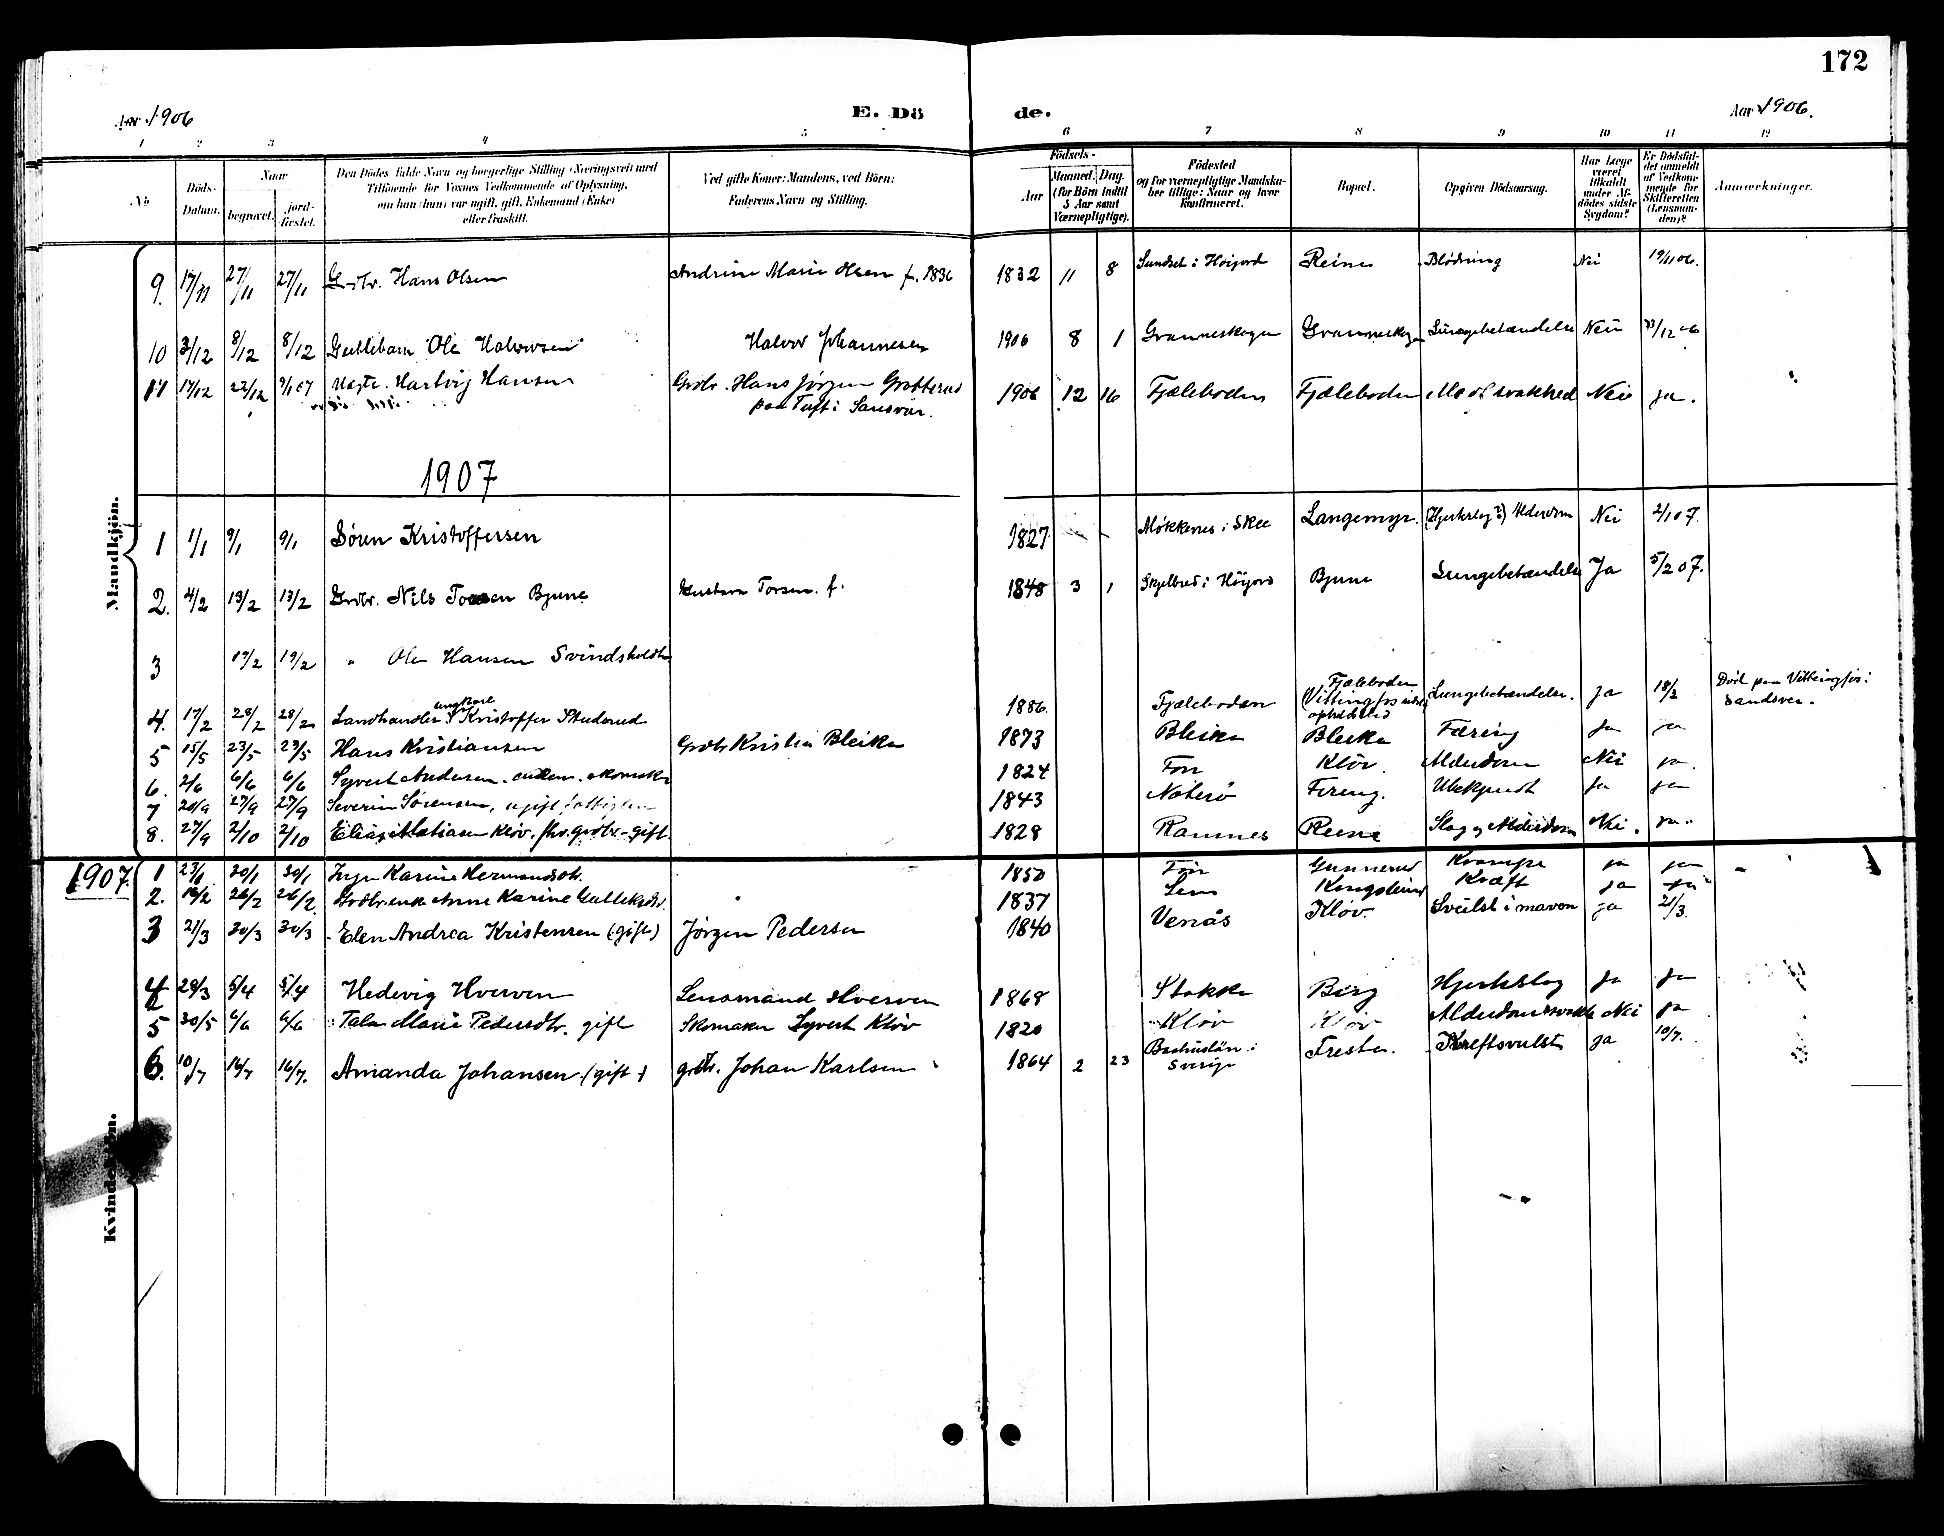 172
Aar 1906
E. Dö
de.
Aar 1906.
1 2 3 4 5 6 7 8 9 10 11 12
No
Döds-Datum.
Naar
begravet.
jordfæstet.
Den Dödes fulde Navn og borgerlige Stilling (Næringsvei) med
Tilföiende for Voxnes Vedkommende af Oplysning,
om han (hun) var ugift, gift, Enkemand (Enke)
eller fraskilt.
Ved gifte Koner: Mandens, ved Börn:
Faderens Navn og Stilling.
Födsels-
Aar
Maaned. Dag.
(for Börn indtil
5 Aar samt
Værnepligtige).
Födested
og for værnepligtige Mandskaber tillige: Naar og hvor
konfirmeret.
Bopæl.
Opgiven Dödsaarsag.
Har Læge
været
tilkaldt
under Afdödes sidste
Sygdom?
Er Dödsfaldet anmeldt
af Vedkommende for
Skifteretten
(Lensmanden)?
Anmærkninger.
Mandkjön.
9. 17/11 27/11 27/11 Grdbr. Hans Olsen Andrine Marie Olsen f. 1836 1832 11 8 Sundset i Höijord Reine Blødning Nei 19/11 06.
10 3/12 8/12 8/12 Guttebarn Ole Halvorsen Halvor Johannesen 1906 8 1 Granneskogen Granneskogen Lungebetændelse Nei /12 06
11 17/12 22/12 9/1 07 Uægte. Hartvig Hansen Grdbr. Hans Jörgen Grotterud 1906 12 16 Fjæleboden Fjæleboden Medf svakhed Nei ja.
paa Tuft i Sansvær.
1907
1 1/1 9/1 9/1 Sören Kristoffersen 1827 Møkkenes i Skee Langemyr. (Hjerteslag?) Alderdom Nei 2/1 07.
2. 4/2 13/2 13/2 Grdbr. Nils Torsen Bjune Gustava Torsen. f. 1848 3 1 Skjelbred i Höijord Bjune Lungebetændelse Ja 5/2 07.
3 19/2 19/2 " Ole Hansen Svindsholdt
4. 17/2 28/2 28/2 Landhandler ungkarl Kristoffer Stulsrud 1886. Fjæleboden Fjæleboden (Vittingfos Lungebetændelse. ja 18/2 Död paa Vittingfos i
opholdssted Sandsver.
5 15/5 23/5 23/5 Hans Kristiansen Grdbr Kristian Bleika 1873 Bleika Bleika Tæring ja ja
6. 2/6 6/6 6/6 Syvert Andersen. enkem. skomaker 1824 Fon Kløv. Alderdom Nei ja.
7 20/9 27/9 27/9 Severin Sørensen, ugift fattiglem 1843 Nøterö Foreng. Ubekjendt ja ja
8. 27/9 2/10 2/10 Elias Matiasen Kløv. fhv. grdbr - gift. 1828 Ramnes Reine Slag og Alderdom Nei. ja.
Kvindekjön.
1907.
1 23/1 30/1 30/1 Inger Karine Hermandsdtr. 1850 Fon Gunnerud Krampe ja ja
2. 19/2 26/2 26/2 Grdbr.enke Anne Karine Gulliksdtr. 1837 Lem Kongsteind Kræft ja ja
3 21/3 30/3 30/3 Elen Andrea Kristensen (gift) Jörgen Pedersen 1840 Venås Kløv. Svulst i maven ja 21/3.
4 29/3 5/4 5/4 Hedevig Hverven Lensmand Hverven 1868 Stokke Berg Hjerteslag ja ja
5 30/5 6/6 6/6 Talo Marie Pedersdtr. gift Skomaker Syvert Kløv 1820 Kløv Kløv Alderdomssvakh Nei ja
6. 10/7 16/7 16/7. Amanda Johansen (gift) grdbr. Johan Karlsen 1864 2 23 Bashuslän i Freste. Kreftsvulst ja 10/7.
Sverige